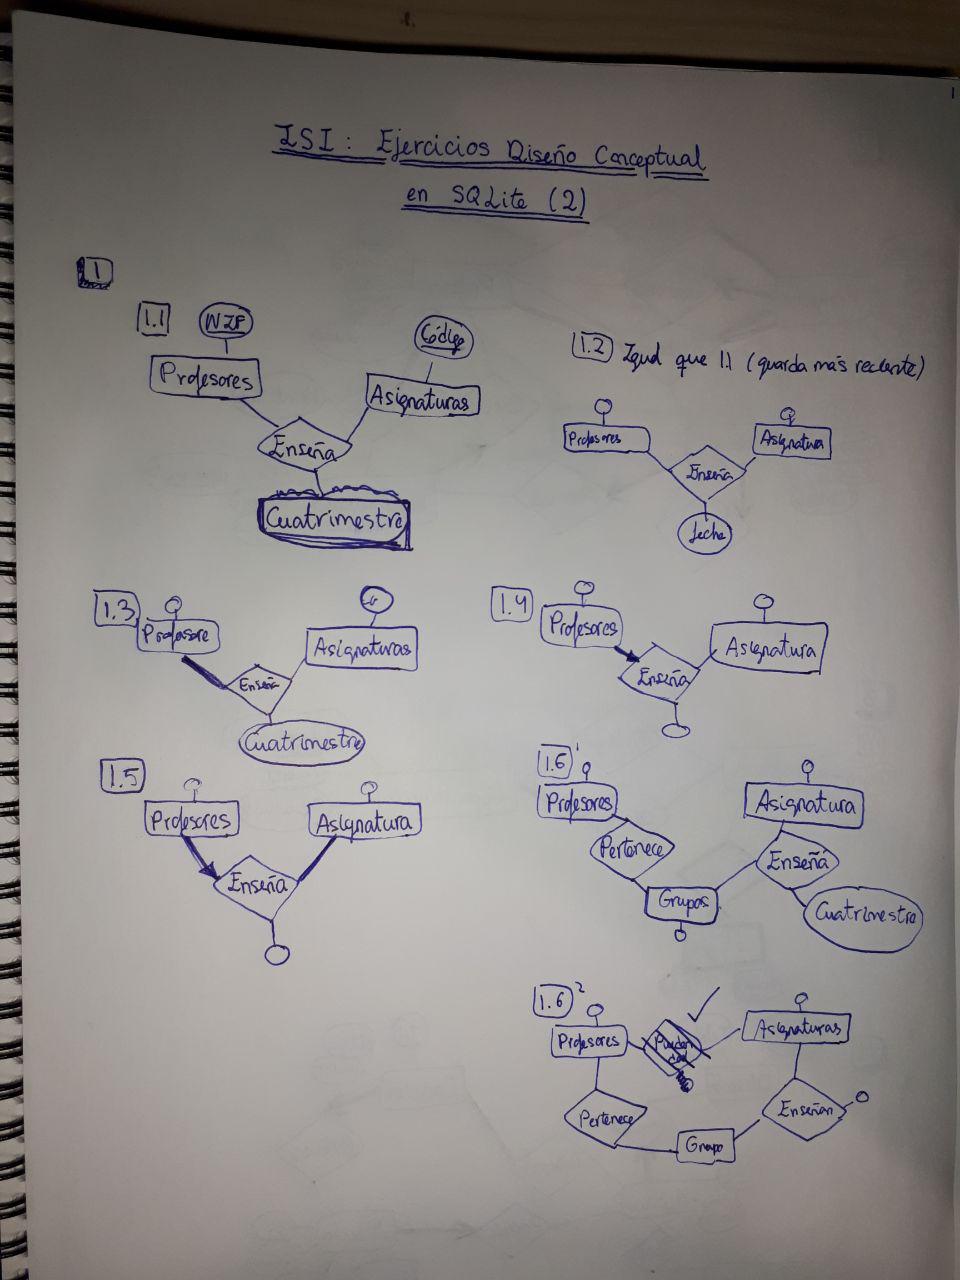 ISI: Ejercicios Diseño Conceptual
en SQLite (2)
1
1.1
NIF
Código
Profesores
Asignaturas
Enseña
Cuatrimestre
1.2 Igual que 1.1 (guarda más reciente)
Profesores
Asignatura
Enseña
fecha
1.3
Profesore
Asignaturas
Enseña
Cuatrimestre
1.4
Profesores
Asignatura
Enseña
1.5
Profesores
Asignatura
Enseña
1.6 1
Profesores
Asignatura
Pertenece
Enseña
Grupos
Cuatrimestre
1.6 2
Profesores
Asignaturas
Pertenece
Enseñan
Grupo